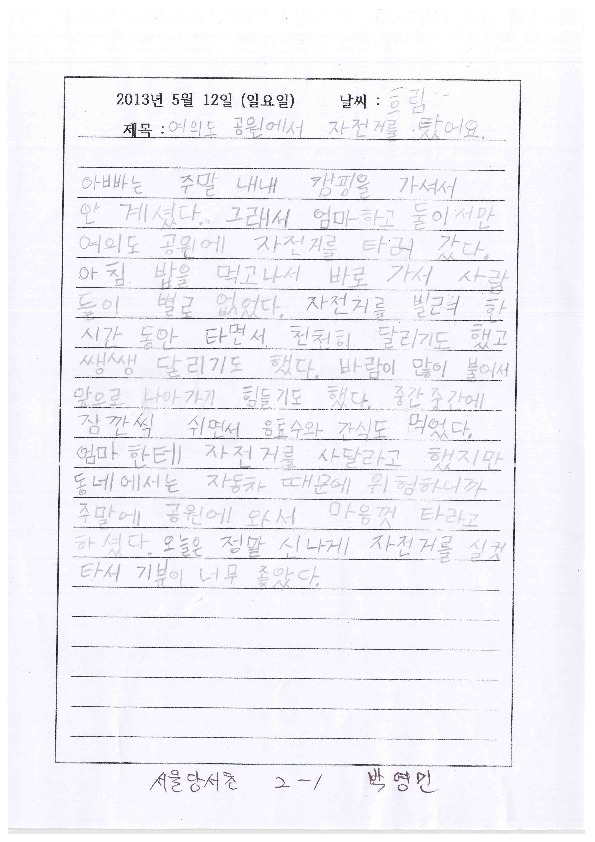 2013년 5월 12일 (일요일) 날씨 : 흐림
제목 : 여의도 공원에서 자전거를 탔어요.
아빠는 주말 내내 캠핑을 가셔서
안 계셨다. 그래서 엄마하고 둘이서만
여의도 공원에 자전거를 타러 갔다.
아침 밥을 먹고나서 바로 가서 사람
들이 별로 없었다. 자전거를 빌려 한
시간 동안 타면서 천천히 달리기도 했고
쌩쌩 달리기도 했다. 바람이 많이 불어서
앞으로 나아가기 힘들기도 했다. 중간중간에
잠깐씩 쉬면서 음료수와 간식도 먹었다.
엄마한테 자전거를 사달라고 했지만
동네에서는 자동차 때문에 위험하니까
주말에 공원에 와서 마음껏 타라고
하셨다. 오늘은 정말 신나게 자전거를 실컷
타서 기분이 너무 좋았다.
서울당서초 2-1 박영민